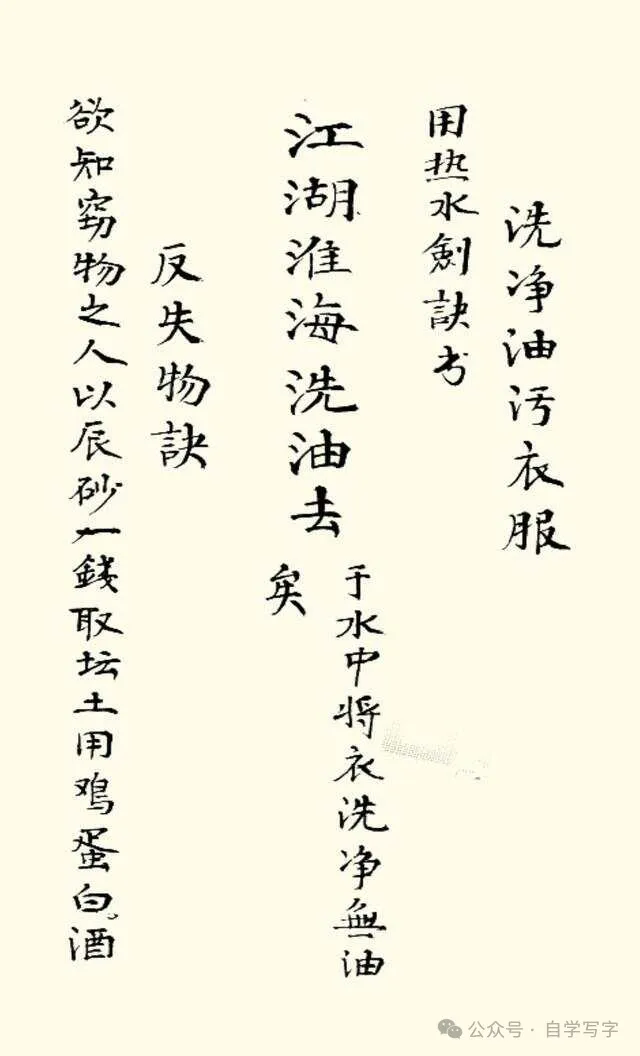 洗净油污衣服
用热水劍訣书
江湖淮海洗油去
于水中将衣洗净無油
矣
反失物訣
欲知窃物之人以辰砂一錢取坛土用鸡蛋白酒
公众号 · 自学写字